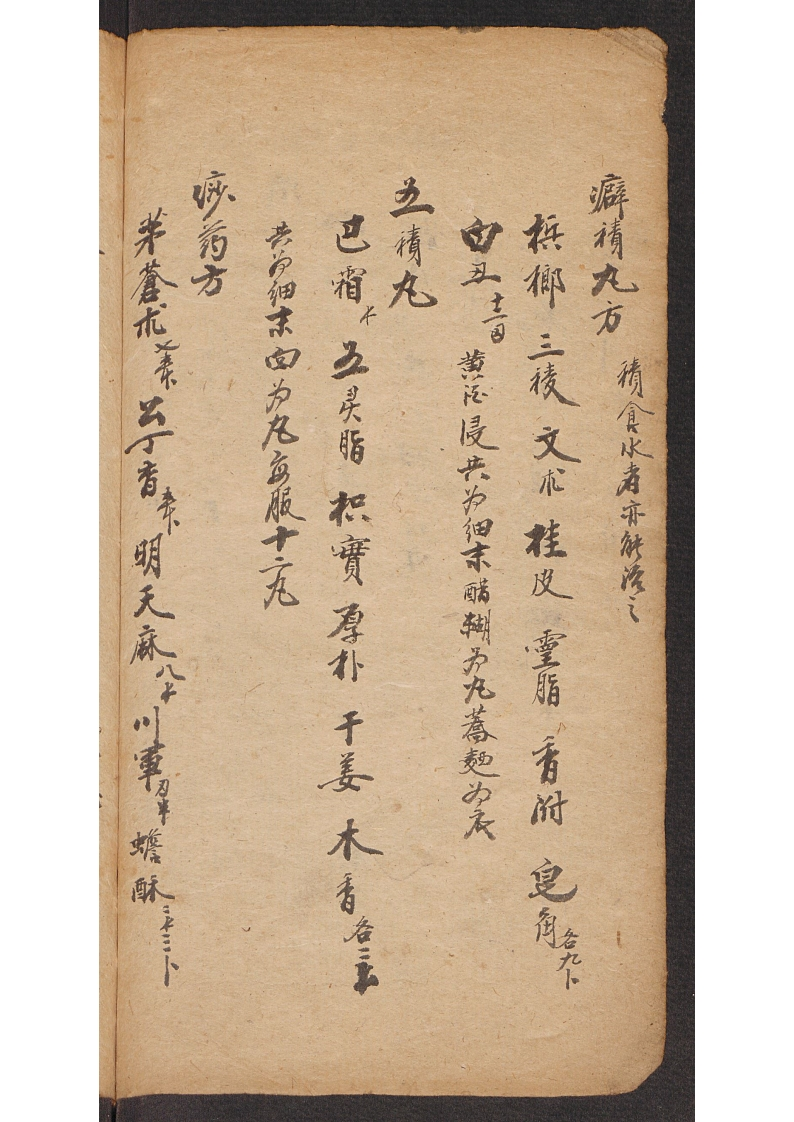 癖積丸方 積食水者亦能治之
梹榔 三稜 文朮 桂皮 霊脂 香附 皂角 各九卜
白丑 黄酒浸共为细末醋糊为丸蕎麺为衣
五積丸
巴霜 五灵脂 枳實 厚朴 干姜 木香 各二
共为细末面为丸每服十二丸
痧药方
茅蒼朮 公丁香 明天麻 八 川軍 蟾酥